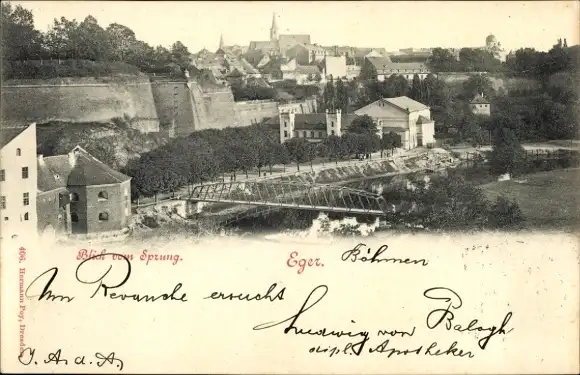 Blick vom Sprung.
Eger. Böhmen
Um Revanche ersucht
Ludwig von Balogh
dipl. Apotheker
J. A. d. A.
406. Hermann Poy, Dresden